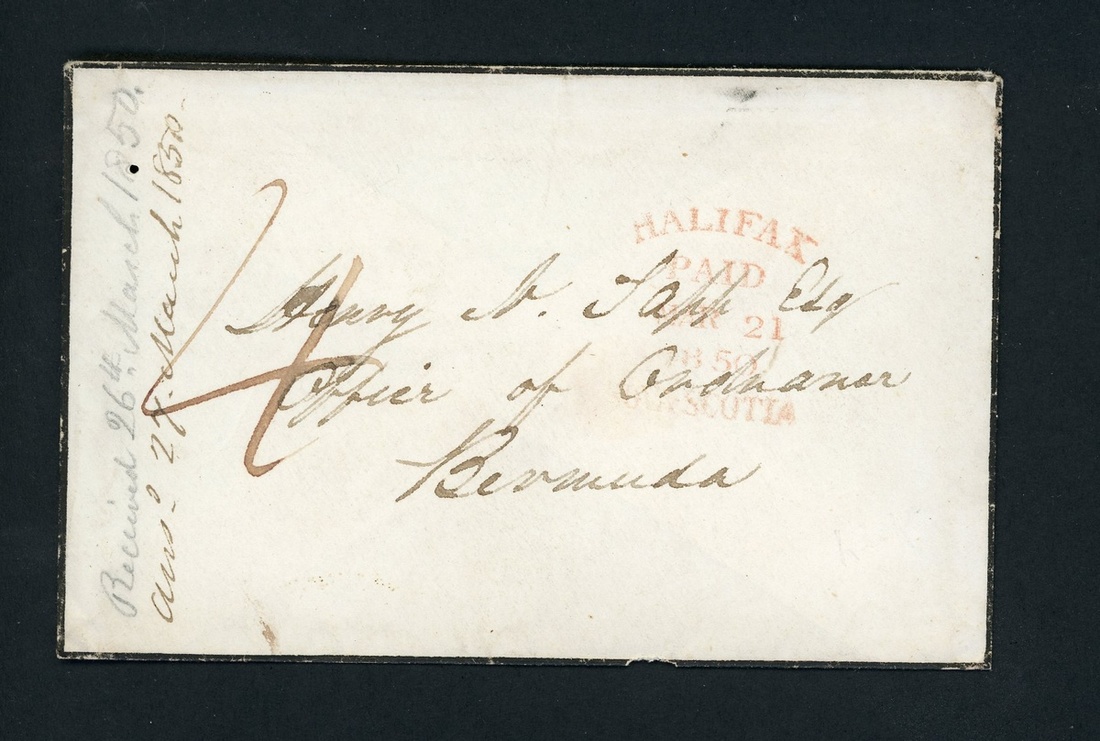 Received 26th March 1850.
ans.d 27. March 1850
4
HALIFAX
PAID
MR 21
1850
NOVA SCOTIA
Henry N. Tapp Esq
Office of Ordnance
Bermuda